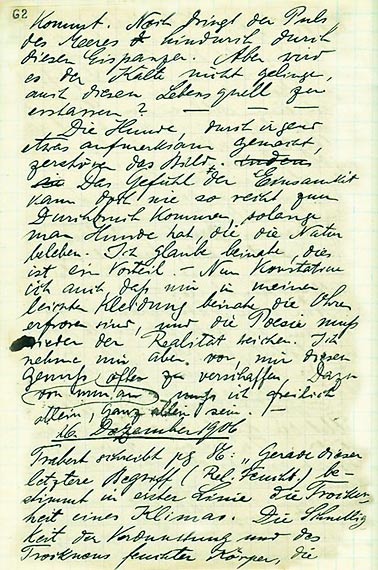 62
kommt. Noch dringt der Puls
des Meeres hindurch durch
diesen Eispanzer. Aber wird
es der Kälte nicht gelingen,
auch diesen Lebensquell zu
erstarren? — — —
Die Hunde, durch irgend
etwas aufmerksam gemacht,
zerstören das Bild.
Das Gefühl der Einsamkeit
kann doch nie so recht zum
Durchbruch kommen, solange
man Hunde hat, die die Natur
beleben. Ich glaube beinahe, dies
ist ein Vorteil. – Nun konstatiere
ich auch daß mir in meiner
leichten Kleidung beinahe die Ohren
erfroren sind, und die Poesie muß
wieder der Realität weichen. Ich
nehme mir aber vor, mir diesen
Genuß öfter zu verschaffen. Dazu
von nun an muß ich freilich
allein, ganz allein sein. –
16. Dezember 1906
Trabert schreibt pg 86: „Gerade dieser
letztere Begriff (Rel. Feucht.) be-
stimmt in erster Linie die Trocken-
heit eines Klimas. Die Schnellig-
keit der Verdunstung und das
Trocknens feuchter Körper, die